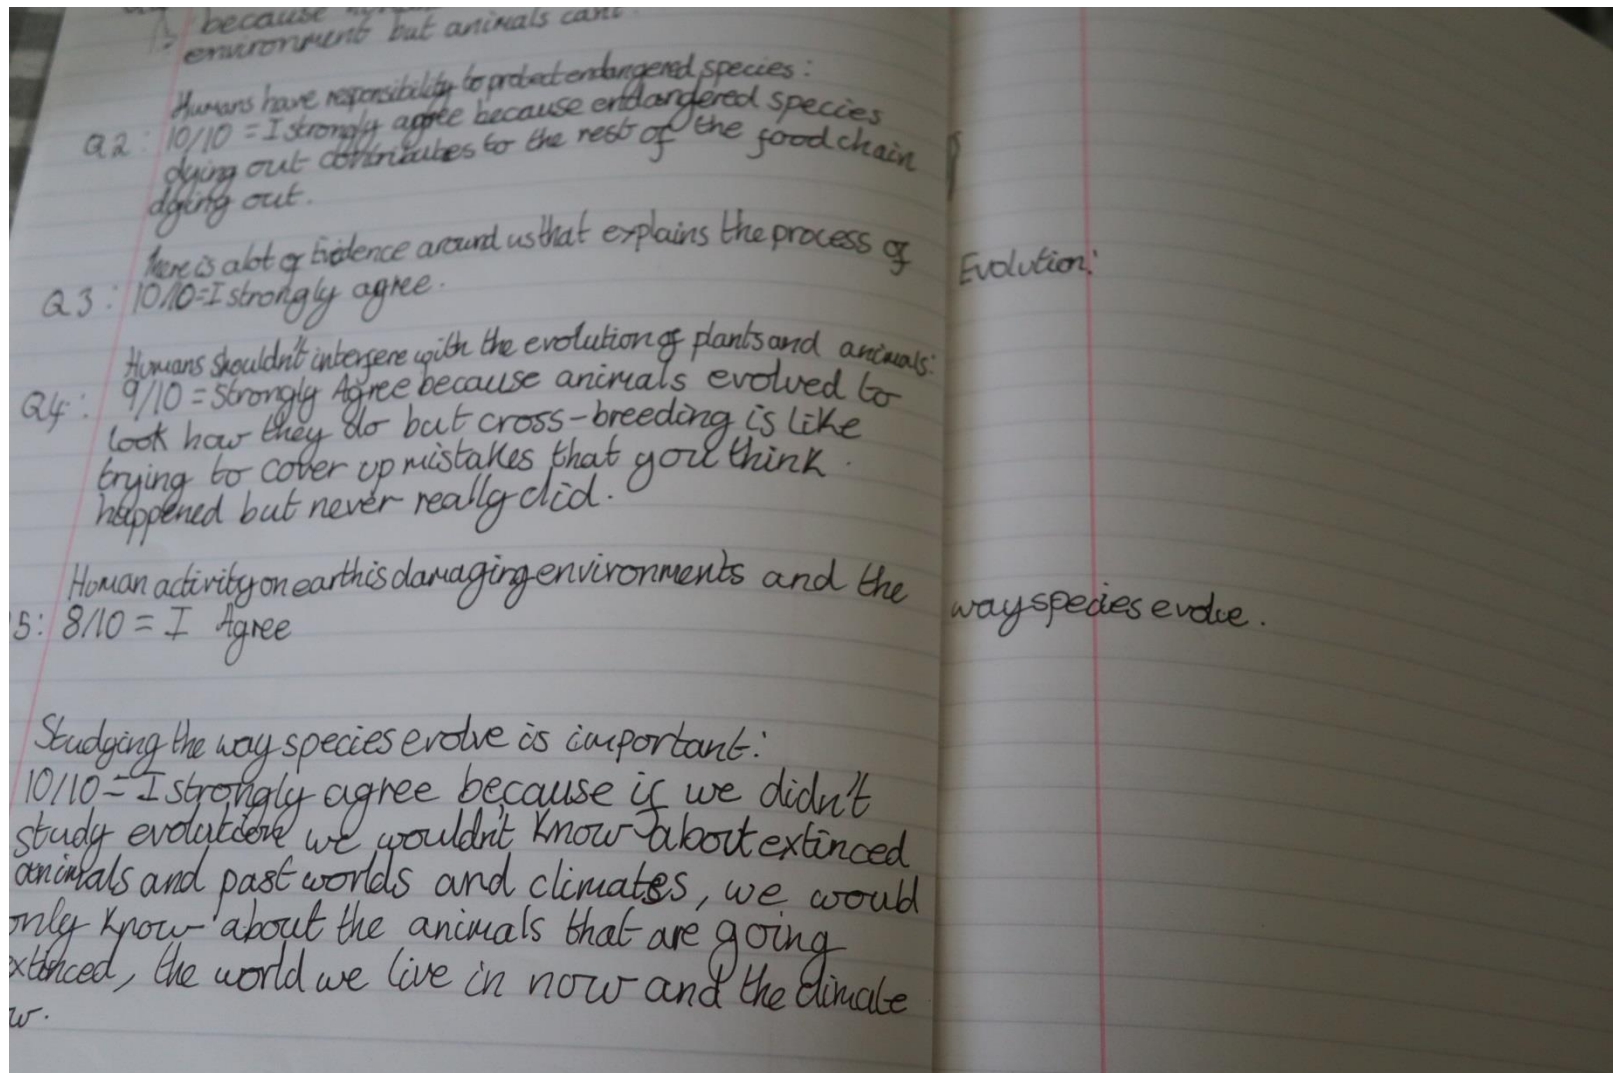 because
environment but animals cant
Humans have responsibility to protect endangered species:
Q2: 10/10 = I strongly agree because endangered species
dying out contributes to the rest of the food chain
dying out.
There is alot of Evidence around us that explains the process of Evolution:
Q3: 10/10 = I strongly agree.
Humans shouldn't intersere with the evolution of plants and animals:
Q4: 9/10 = Strongly Agree because animals evolved to
look how they do but cross-breeding is like
trying to cover up mistakes that you think
happened but never really did.
Human activity on earth is damaging environments and the way species evolve.
5: 8/10 = I Agree
Studying the way species evolve is important:
10/10 = I strongly agree because if we didn't
study evolution we wouldn't know about extinced
animals and past worlds and climates, we would
only know about the animals that are going
extinced, the world we live in now and the climate
w.